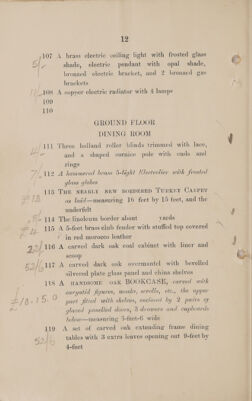 12
107 A brass electric ceiling light with frosted glass
shade, electric pendant with opal shade,
bronzed electric bracket, and 2 bronzed gas
brackets
5/-
108 A copper electric radiator with 4 lamps
109
110
GROUND FLOOR
DINING ROOM
111 Three holland roller blinds trimmed with lace,
and a shaped cornice pole with ends and
rings
4/-
112 A hammered brass 5-light Electrolier with frosted
glass globes
113 The nearly new bordered Turkey Carpet
as laid—measuring 16 feet by 15 feet, and the
underfelt
114 The linoleum border about yards
115 A 5-feet brass club fender with stuffed top covered
in red morocco leather
116 A carved dark oak coal cabinet with liner and
scoop
117 A carved dark oak overmantel with bevelled
silvered plate glass panel and china shelves
52/6
118 A handsome oak BOOKCASE, carved with
caryatid figures, masks, scrolls, etc., the upper
part fitted with shelves, enclosed by 2 pairs of
glazed panelled doors, 3 drawers and cupboards
below—measuring 5-feet-6 wide
£10.15.0
119 A set of carved oak extending frame dining
tables with 3 extra leaves opening out 9-feet by
4-feet
52/6